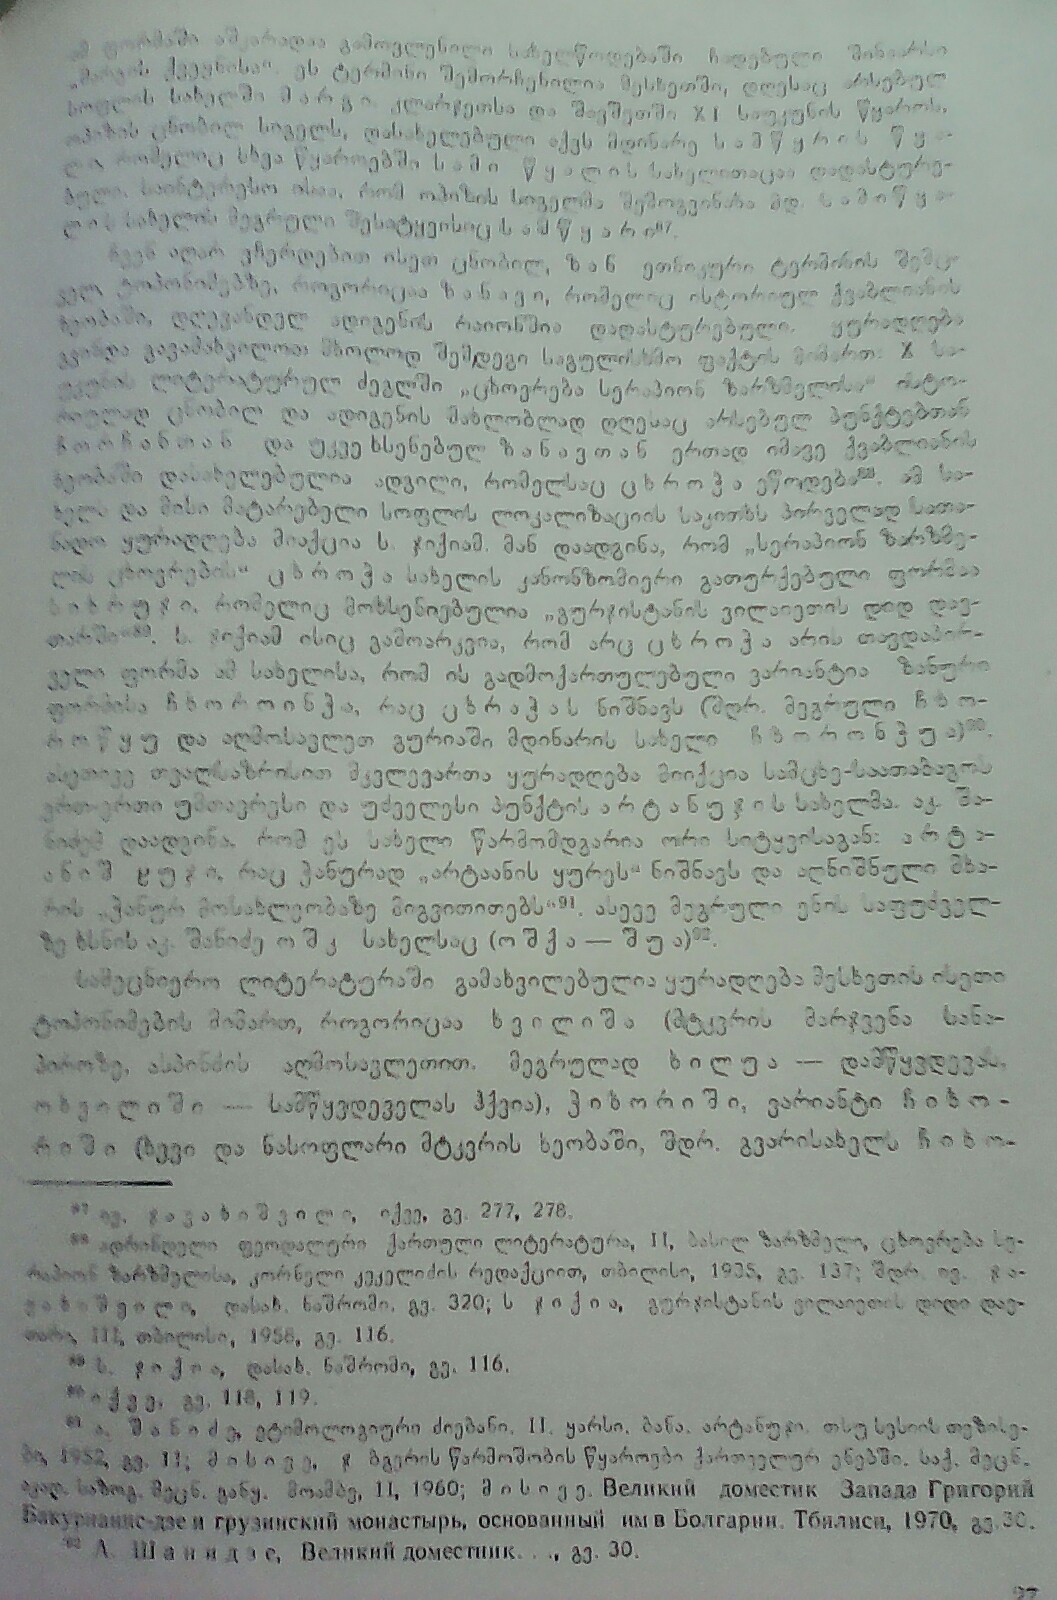 ამ ფორმაში აშკარადაა გამოვლენილი სახელწოდებაში ჩადებული შინაარსი
„მარგის ქვეყნისა“. ეს ტერმინი შემორჩენილია მესხეთში, დღესაც არსებულ
სოფლის სახელში მარგი. კლარჯეთსა და შავშეთში XI საუკუნის წყაროს,
ოპიზის ცნობილ სიგელს, დასახელებული აქვს მდინარე სამწყრის წყა-
ლი, რომელიც სხვა წყაროებში სამი წყალის სახელითაცაა დადასტურე-
ბული. საინტერესო ისაა, რომ ოპიზის სიგელმა შემოგვინახა მდ. სამიწყა-
ლის სახელის მეგრული შესატყვისიც სამწყარი⁸⁷.
ჩვენ აღარ ვჩერდებით ისეთ ცნობილ, ზან ეთნიკური ტერმინის შემც-
ველ ტოპონიმებზე, როგორიცაა ზანავი, რომელიც ისტორიულ ქვაბლიანის
ხეობაში, დღევანდელ ადიგენის რაიონშია დადასტურებული. ყურადღება
გვინდა გავამახვილოთ მხოლოდ შემდეგი საგულისხმო ფაქტის მიმართ: X სა-
უკუნის ლიტერატურულ ძეგლში „ცხოვრება სერაპიონ ზარზმელისა“ ისტო-
რიულად ცნობილ და ადიგენის მახლობლად დღესაც არსებულ პუნქტებთან
ჩორჩანთან და უკვე ხსენებულ ზანავთან ერთად იმავე ქვაბლიანის
ხეობაში დასახელებულია ადგილი, რომელსაც ცხროჭა ეწოდება⁸⁸. ამ სა-
ხელს და მისი მატარებელი სოფლის ლოკალიზაციის საკითხს პირველად სათა-
ნადო ყურადღება მიაქცია ს. ჯიქიამ. მან დაადგინა, რომ „სერაპიონ ზარზმე-
ლის ცხოვრების“ ცხროჭა სახელის კანონზომიერი გათურქებული ფორმაა
რომელიც მოხსენიებულია „გურჯისტანის ვილაიეთის დიდ დავ-
თარში“⁸⁹. ს. ჯიქიამ ისიც გამოარკვია, რომ არც ცხროჭა არის თავდაპირ-
ველი ფორმა ამ სახელისა, რომ ის გადმოქართულებული ვარიანტია ზანური
ფორმისა ჩხოროინჭა, რაც ცხრაჭას ნიშნავს (შდრ. მეგრული ჩხო-
როწყუ და აღმოსავლეთ გურიაში მდინარის სახელი ჩხორონჭუა)⁹⁰.
ასეთივე თვალსაზრისით მკვლევართა ყურადღება მიიქცია სამცხე-საათაბაგოს
ერთ-ერთი უმთავრესი და უძველესი პუნქტის არტანუჯის სახელმა. აკ. შა-
ნიძემ დაადგინა, რომ ეს სახელი წარმომდგარია ორი სიტყვისაგან: არტა-
ანიშ ყუჯი, რაც ჭანურად „არტაანის ყურეს“ ნიშნავს და აღნიშნული მხა-
რის „ჭანურ მოსახლეობაზე მიგვითითებს“⁹¹. ასევე მეგრული ენის საფუძველ-
ზე ხსნის აკ. შანიძე ოშკ სახელსაც (ოშქა — შუა)⁹².
სამეცნიერო ლიტერატურაში გამახვილებულია ყურადღება მესხეთის ისეთი
ტოპონიმების მიმართ, როგორიცაა ხვილიშა (მტკვრის მარჯვენა სანა-
პიროზე, ასპინძის აღმოსავლეთით. მეგრულად ხილუა — დამწყვდევას,
ოხვილიში — სამწყვდეველას ჰქვია), ჭიხორიში, ვარიანტი ჩიხო-
რიში (ხევი და ნასოფლარი მტკვრის ხეობაში, შდრ. გვარისახელს ჩიხო-
⁸⁷ ივ. ჯავახიშვილი, იქვე, გვ. 277, 278.
⁸⁸ ადრინდელი ფეოდალური ქართული ლიტერატურა, II, ბასილ ზარზმელი, ცხოვრება სე-
რაპიონ ზარზმელისა, კორნელი კეკელიძის რედაქციით, თბილისი, 1935, გვ. 137; შდრ. ივ. ჯა-
ვახიშვილი, დასახ. ნაშრომი, გვ. 320; ს. ჯიქია, გურჯისტანის ვილაიეთის დიდი დავ-
თარი, III, თბილისი, 1958, გვ. 116.
⁸⁹ ს. ჯიქია, დასახ. ნაშრომი, გვ. 116.
⁹⁰ იქვე, გვ. 118, 119.
⁹¹ ა. შანიძე, ეტიმოლოგიური ძიებანი. II. ყარსი. ბანა. არტანუჯი. თსუ სესიის თეზისე-
ბი, 1952, გვ. 11; მისივე, ჯ ბგერის წარმოშობის წყაროები ქართველურ ენებში. საქ. მეცნ.
აკად. საზოგ. მეცნ. განყ. მოამბე, II, 1960; მისივე. Великий доместик Запада Григорий
Бакурианис-дзе и грузинский монастырь, основанный им в Болгарии. Тбилиси, 1970, გვ. 30.
⁹² А. Шанидзе, Великий доместник. . ., გვ. 30.